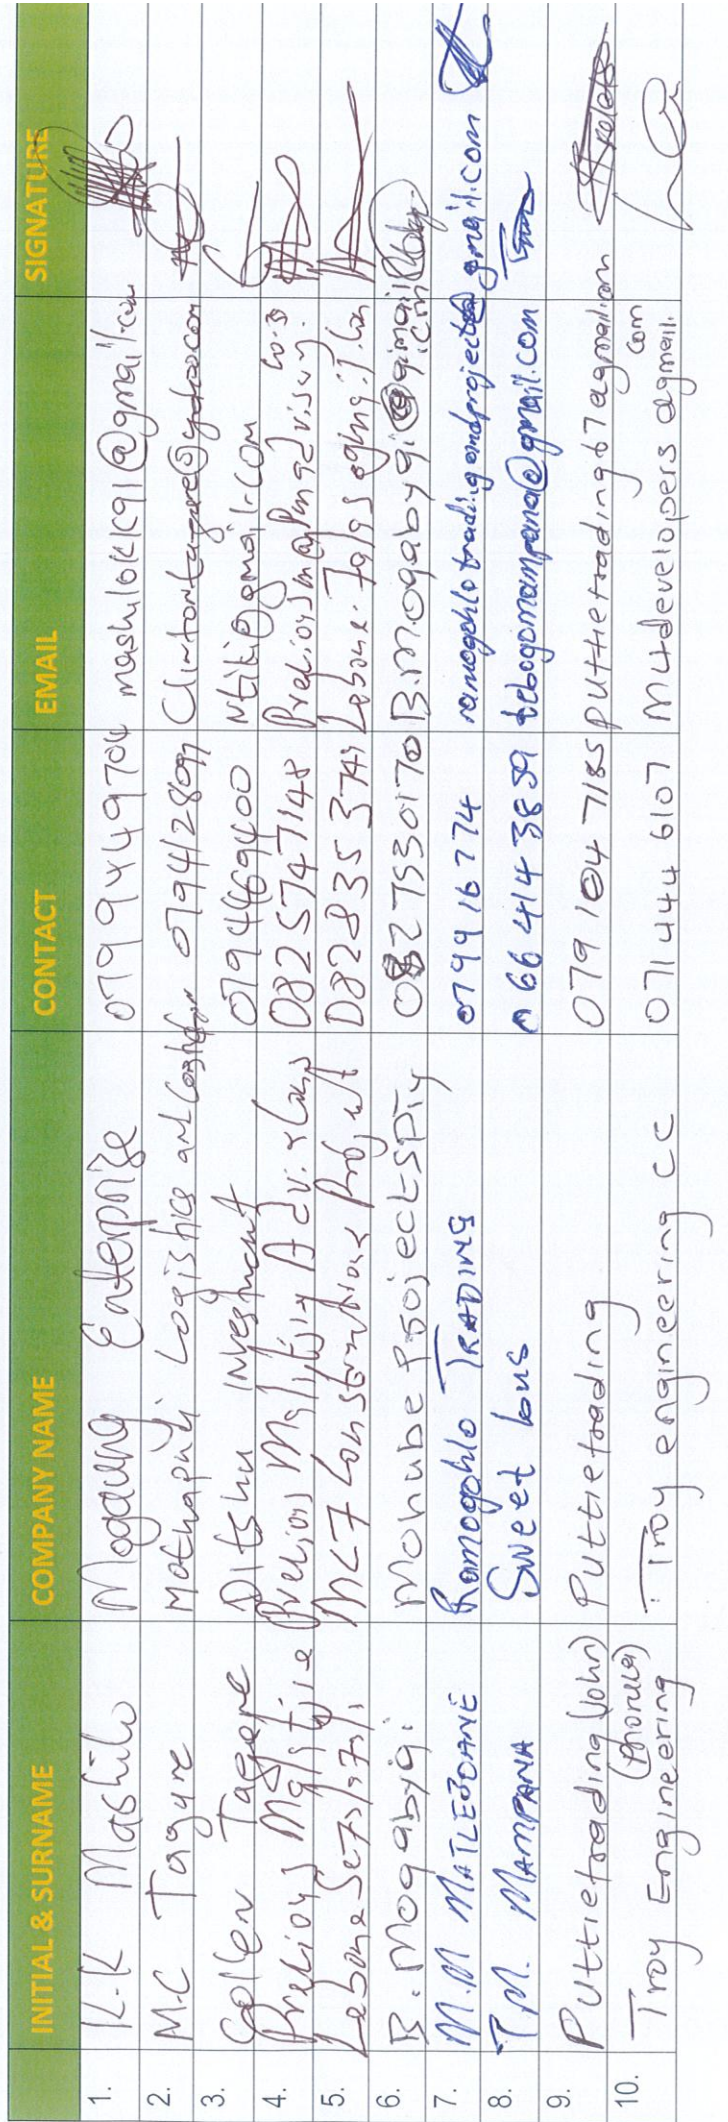 INITIAL & SURNAME COMPANY NAME CONTACT EMAIL SIGNATURE
1. K.K Mashilo Mogaung Enterprize 0799449704 mashilokk91@gmail.com
2. M.C Tagure Logistics and 0794412809 Clintontagure@yahoo.com
3. Collen Tagere Ditshu Investment 0794469400 Ntiki@gmail.com
4. Precious 0825747148
5. Lebone MC7 Construction & Project 082835374
6. B. Mogabygi Monube Projects Pty 0827530170 B.mogabygi@gmail.com
7. M.M MATLEBOANE Ramogohlo TRADING 079916774 ramogohlotradingandprojects@gmail.com
8. T.M. MAMPANA Sweet 066 414 3859 tebogomampana@gmail.com
9. Puttietrading (John) Puttietrading 079 104 7185 puttietrading67@gmail.com
10. Troy Engineering (Phorula) Troy engineering cc 071 444 6107 M4developers@gmail.com